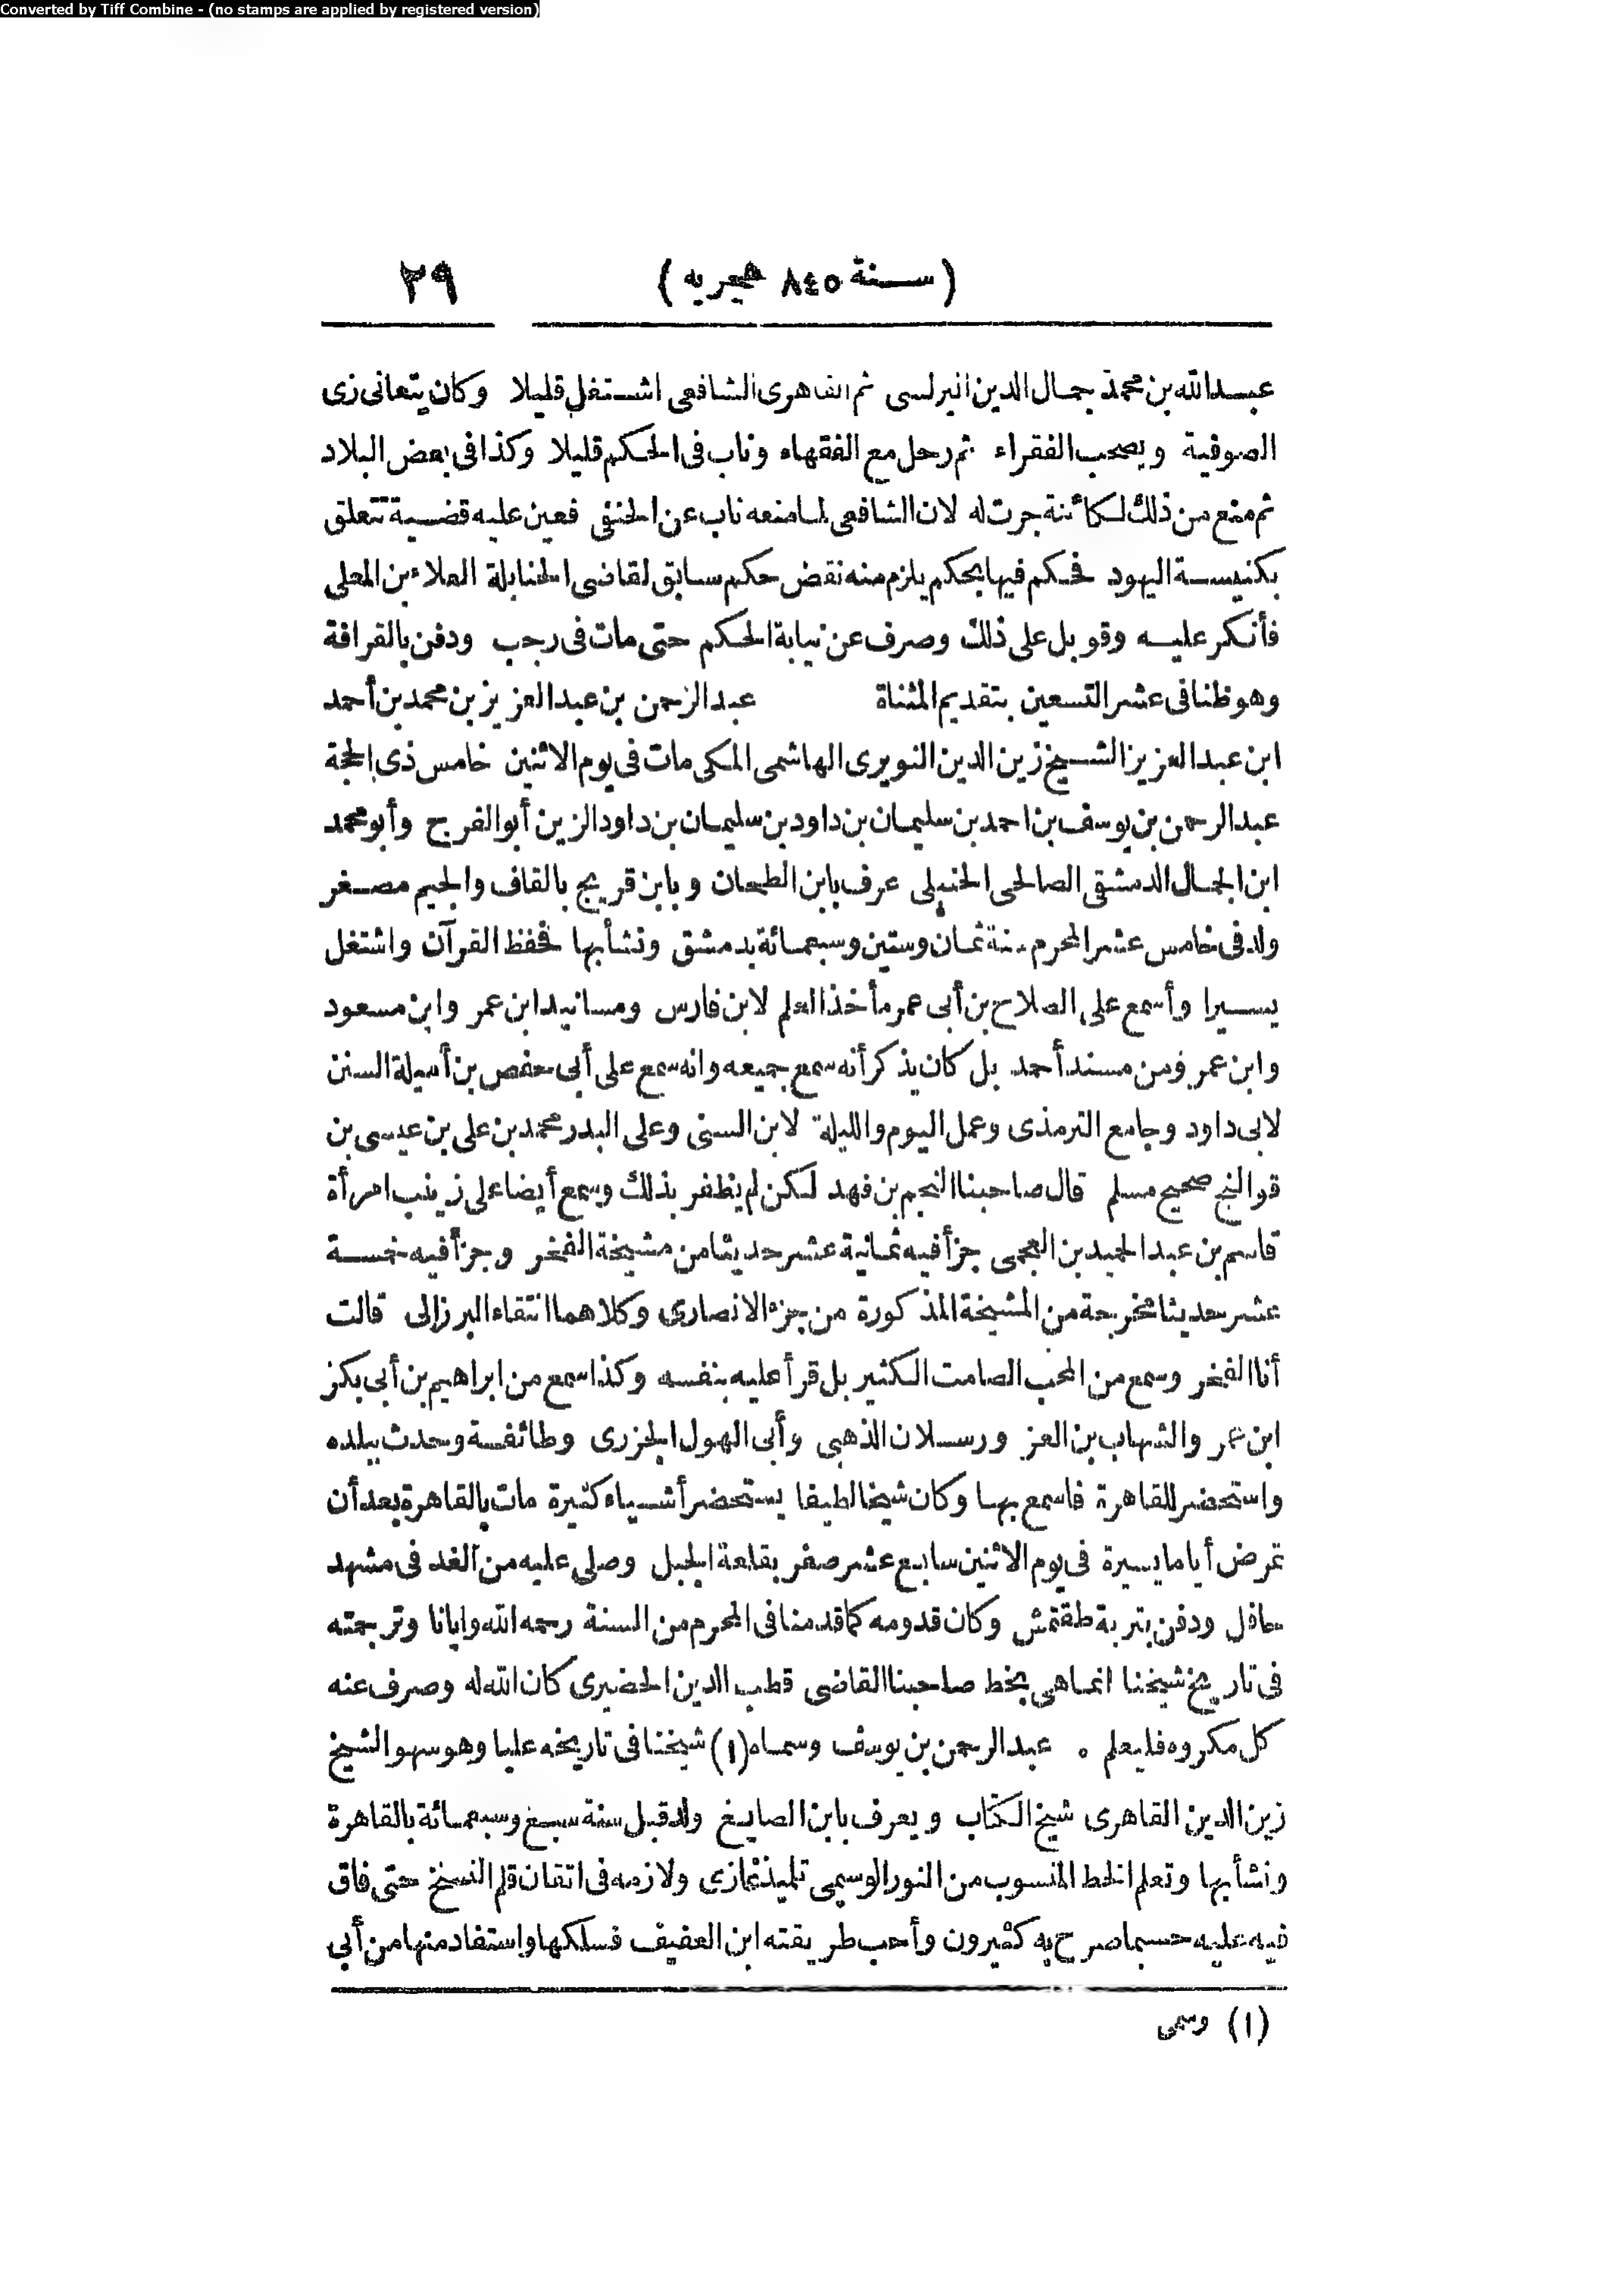 Converted by Tiff Combine - (no stamps are applied by registered version)
(سنة ٨٤٥ هجريه) ٢٩
عبدالله بن محمد جمال الدين البرلسى ثم القاهرى الشافعى اشتغل قليلا وكان يتعانى زى
الصوفية ويصحب الفقراء ثم رحل مع الفقهاء وناب فى الحكم قليلا وكذا فى بعض البلاد
ثم منع من ذلك لكائنة جرت له لان الشافعى لما منعه ناب عن الحنفى فعين عليه قضية تتعلق
بكنيسة اليهود فحكم فيها بحكم يلزم منه نقض حكم سابق لقاضى الحنابلة العلاء بن المعلى
فأنكر عليه وقوبل على ذلك وصرف عن نيابة الحكم حتى مات فى رجب ودفن بالقرافة
وهو ظنا فى عشر التسعين بتقديم المثناة عبد الرحمن بن عبد العزيز بن محمد بن أحمد
ابن عبد العزيز الشيخ زين الدين النويرى الهاشمى المكى مات فى يوم الاثنين خامس ذى الحجة
عبد الرحمن بن يوسف بن احمد بن سليمان بن داود بن سليمان بن داود الزين أبو الفرج وأبو محمد
ابن الجمال الدمشقى الصالحى الحنبلى عرف بابن الطحان وبابن قريج بالقاف والجيم مصغر
ولد فى خامس عشر المحرم سنة ثمان وستين وسبعمائة بدمشق ونشأ بها فحفظ القرآن واشتغل
يسيرا وأسمع على الصلاح بن أبى عمر مأخذ العلم لابن فارس ومسانيد ابن عمر وابن مسعود
وابن عمرو من مسند أحمد بل كان يذكر أنه سمع جميعه وانه سمع على أبى حفص بن أميلة السنن
لابى داود وجامع الترمذى وعمل اليوم والليلة لابن السنى وعلى البدر محمد بن على بن عيسى بن
قوالنج صحيح مسلم قال صاحبنا النجم بن فهد لكن لم يظفر بذلك وسمع أيضا على زينب امرأة
قاسم بن عبد الحميد بن العجمى جزأ فيه ثمانية عشر حديثا من مشيخة الفخر وجزأ فيه خمسة
عشر حديثا مخرجة من المشيخة المذكورة من جزء الانصارى وكلاهما انتقاء البرزالى قالت
أنا الفخر وسمع من المحب الصامت الكثير بل قرأ عليه بنفسه وكذا سمع من ابراهيم بن أبى بكر
ابن عمر والشهاب بن العز ورسلان الذهبى وأبى الهول الجزرى وطائفة وحدث ببلده
واستحضر للقاهرة فاسمع بها وكان شيخا لطيفا يستحضر أشياء كثيرة مات بالقاهرة بعد أن
تمرض أياما يسيرة فى يوم الاثنين سابع عشر صفر بقلعة الجبل وصلى عليه من الغد فى مشهد
حافل ودفن بتربة طقتمش وكان قدومه كما قدمنا فى المحرم من السنة رحمه الله وايانا وترجمته
فى تاريخ شيخنا انما هى بخط صاحبنا القاضى قطب الدين الخضيرى كان الله له وصرف عنه
كل مكروه فليعلم . عبد الرحمن بن يوسف وسماه (١) شيخنا فى تاريخه عليا وهو سهو الشيخ
زين الدين القاهرى شيخ الكتاب ويعرف بابن الصايغ ولد قبل سنة سبع وسبعمائة بالقاهرة
ونشأ بها وتعلم الخط المنسوب من النور الوسيمى تلميذ غازى ولازمه فى اتقان قلم النسخ حتى فاق
فيه عليه حسبما صرح به كثيرون وأحب طريقته ابن العفيف فسلكها واستفاد منها من أبى
(١) وسمى